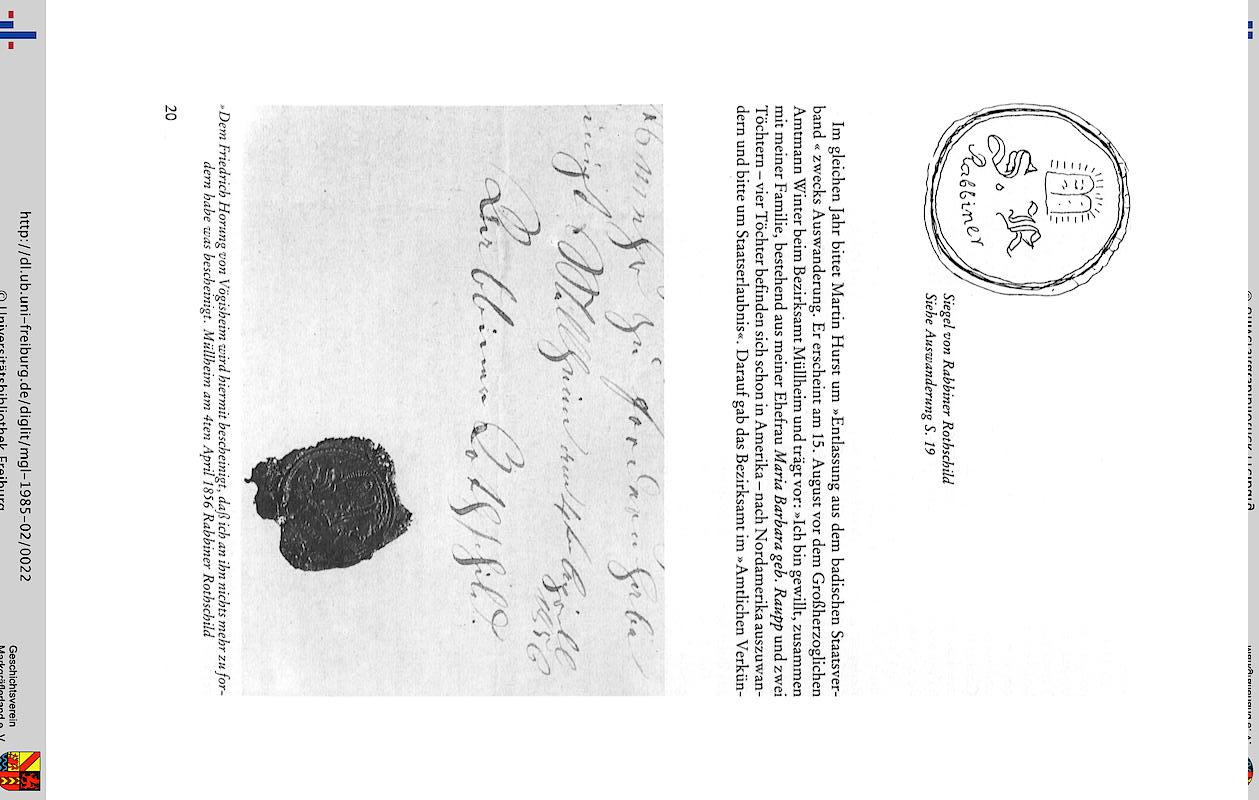 Rabbiner
Siegel von Rabbiner Rothschild
Siehe Auswanderung S. 19
Im gleichen Jahr bittet Martin Hurst um »Entlassung aus dem badischen Staatsver-
band « zwecks Auswanderung. Er erscheint am 15. August vor dem Großherzoglichen
Amtmann Winter beim Bezirksamt Müllheim und trägt vor: »Ich bin gewillt, zusammen
mit meiner Familie, bestehend aus meiner Ehefrau Maria Barbara geb. Raupp und zwei
Töchtern – vier Töchter befinden sich schon in Amerika – nach Nordamerika auszuwan-
dern und bitte um Staatserlaubnis«. Darauf gab das Bezirksamt im »Amtlichen Verkün-
1856
Rabbiner Rothschild
»Dem Friedrich Hornung von Vögisheim wird hiermit bescheinigt, daß ich an ihn nichts mehr zu for-
dern habe was bescheinigt. Müllheim am 4ten April 1856 Rabbiner Rothschild
20
http://dl.ub.uni-freiburg.de/diglit/mgl-1985-02/0022
© Universitätsbibliothek Freiburg
Geschichtsverein
Markgräflerland e. V.